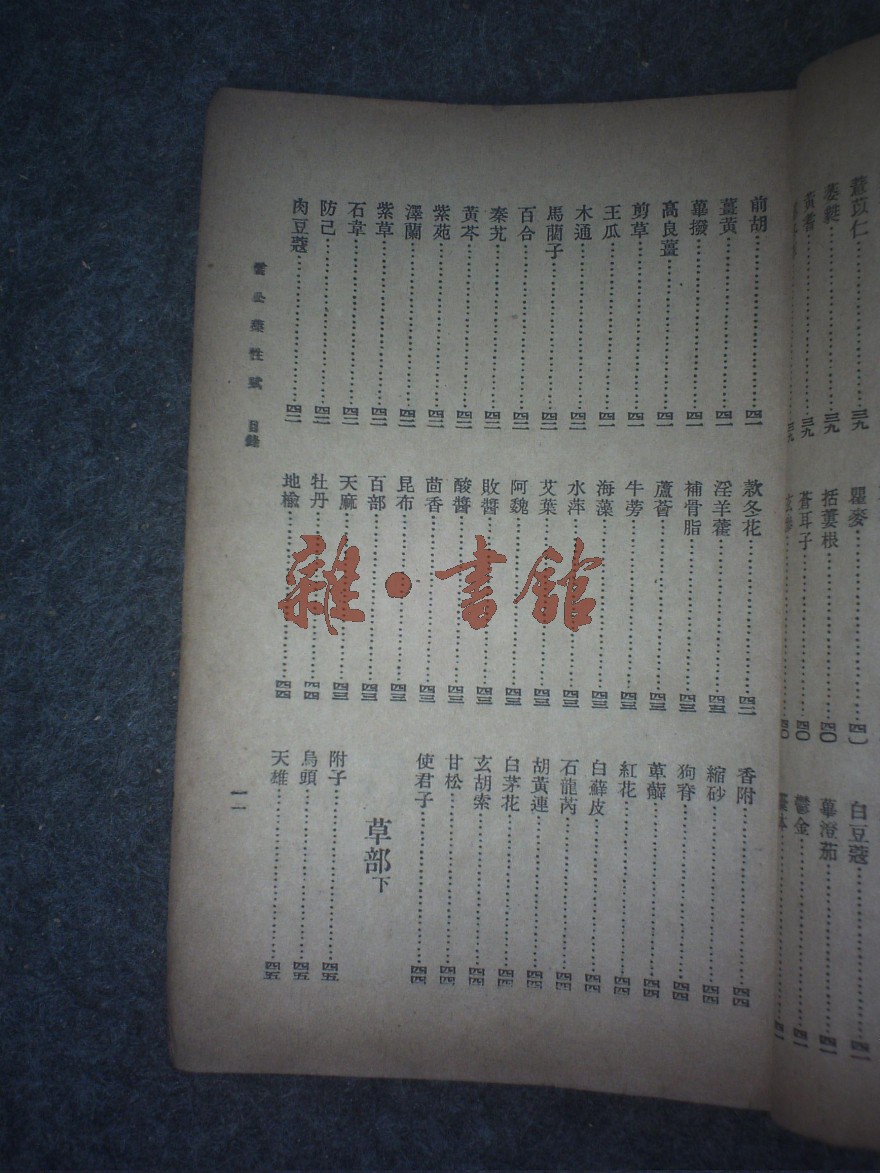 薏苡仁…………三九
萎蕤…………三九
黃耆…………三九
瞿麥…………四〇
括蔞根…………四〇
蒼耳子…………四〇
白豆蔻…………四一
蓽澄茄…………四一
鬱金…………四一
前胡…………四一
薑黃…………四一
蓽撥…………四一
高良薑…………四一
剪草…………四一
王瓜…………四一
木通…………四二
馬藺子…………四二
百合…………四二
秦艽…………四二
黃芩…………四二
紫苑…………四二
澤蘭…………四二
紫草…………四二
石韋…………四二
防己…………四二
肉豆蔻…………四二
款冬花…………四二
淫羊藿…………四三
補骨脂…………四三
蘆薈…………四三
牛蒡…………四三
海藻…………四三
水萍…………四三
艾葉…………四三
阿魏…………四三
敗醬…………四三
酸醬…………四三
茴香…………四三
昆布…………四三
百部…………四三
天麻…………四三
牡丹…………四四
地榆…………四四
香附…………四四
縮砂…………四四
狗脊…………四四
萆薢…………四四
紅花…………四四
白蘚皮…………四四
石龍芮…………四四
胡黃連…………四四
白茅花…………四四
玄胡索…………四四
甘松…………四四
使君子…………四四
草部下
附子…………四五
烏頭…………四五
天雄…………四五
雷公藥性賦 目錄
一一
雜·書館